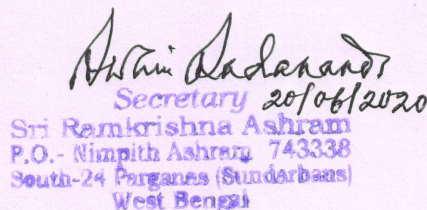 Swami Sadananda
Secretary 20/06/2020
Sri Ramkrishna Ashram
P.O.- Nimpith Ashram 743338
South-24 Parganas (Sundarbans)
West Bengal